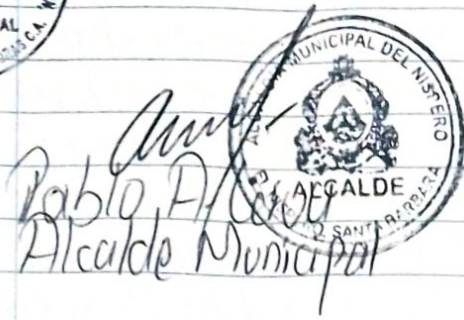 AL
C.A.
MUNICIPAL DEL NISPERO
ALCALDE
SANTA BARBARA
Pablo
Alcalde Municipal